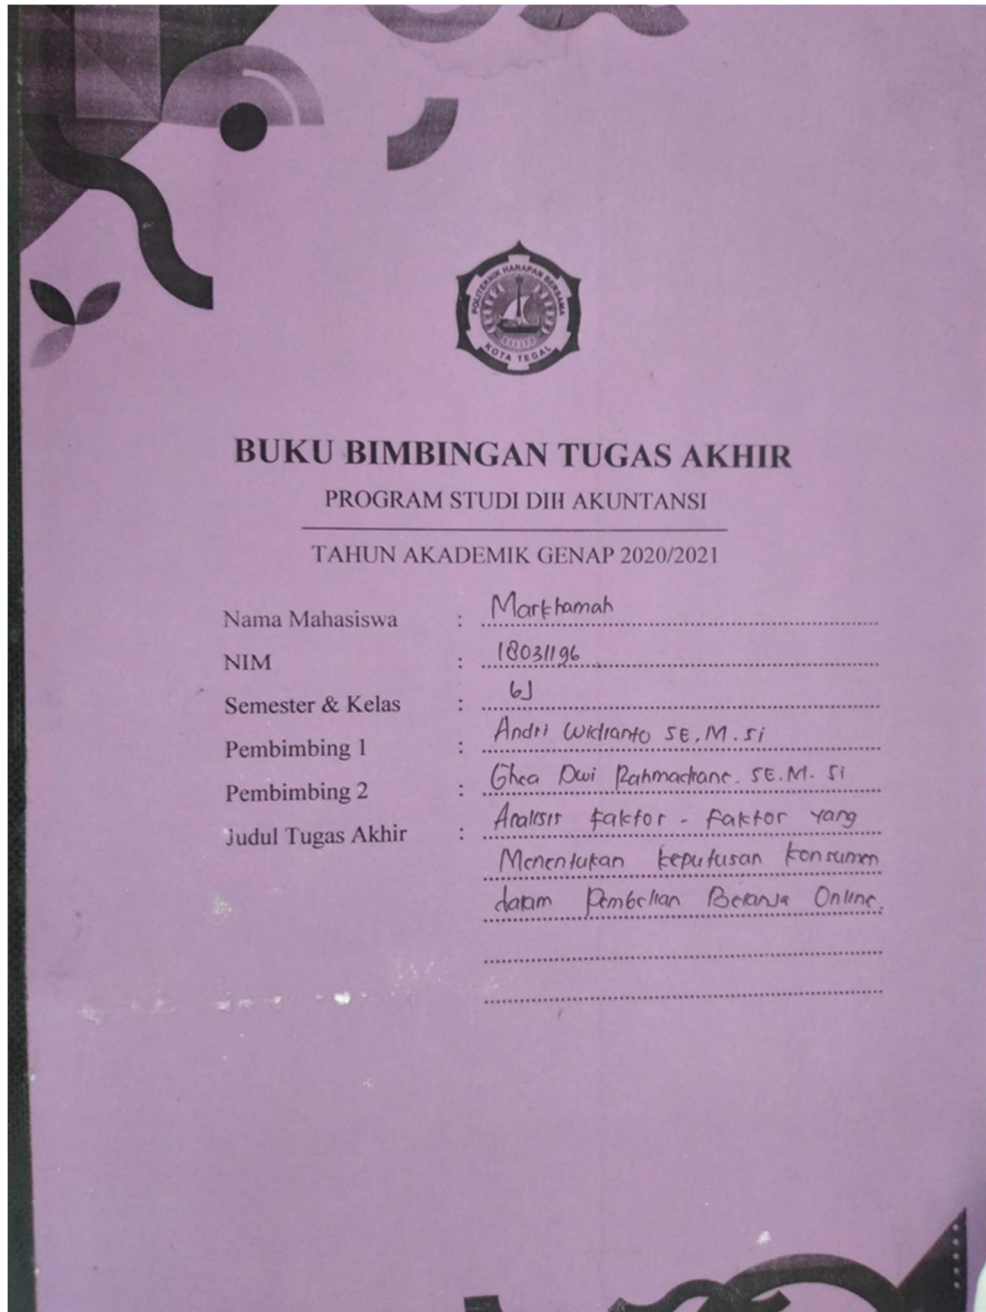 POLITEKNIK HARAPAN BERSAMA
KOTA TEGAL
BUKU BIMBINGAN TUGAS AKHIR
PROGRAM STUDI DIII AKUNTANSI
TAHUN AKADEMIK GENAP 2020/2021
Nama Mahasiswa : Markhamah
NIM : 18031196
Semester & Kelas : 6J
Pembimbing 1 : Andri Widianto SE, M. Si
Pembimbing 2 : Ghea Dwi Rahmadiane. SE. M. Si
Judul Tugas Akhir : Analisis Faktor - Faktor Yang
Menentukan keputusan konsumen
dalam Pembelian Belanja Online.